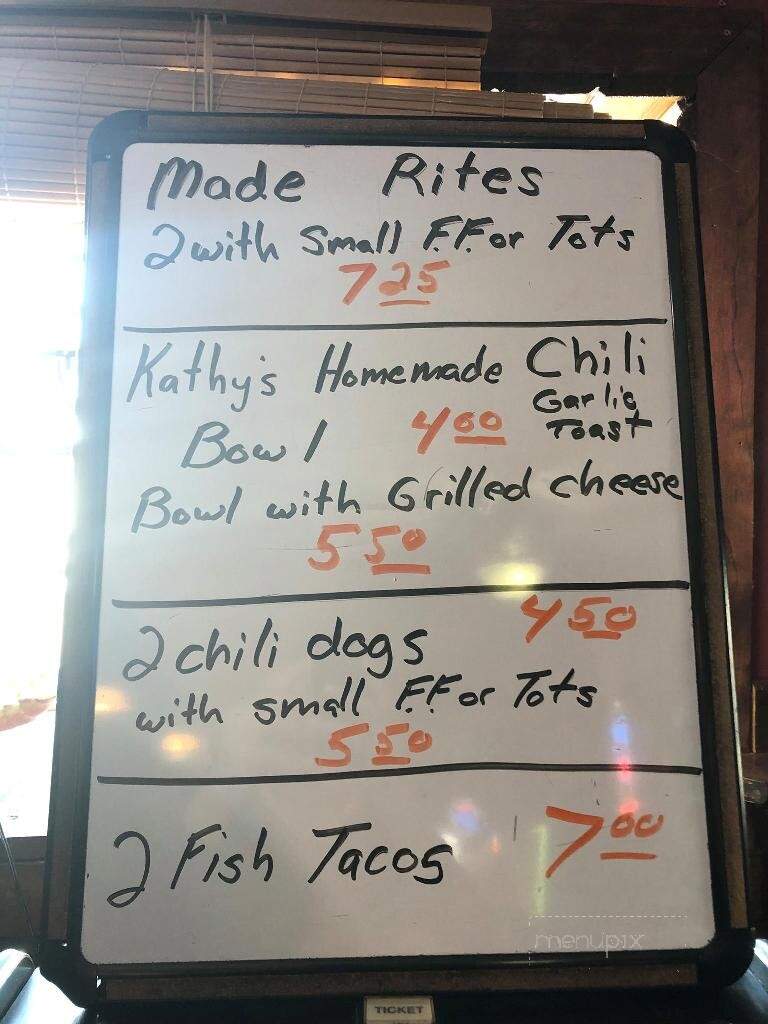 Made Rites
2 with Small F.F. or Tots
7 25
Kathy's Homemade Chili
Garlic
Toast
Bowl 4 00
Bowl with Grilled cheese
5 50
2 chili dogs 4 50
with small F.F. or Tots
5 50
2 Fish Tacos 7 00
menupix
TICKET